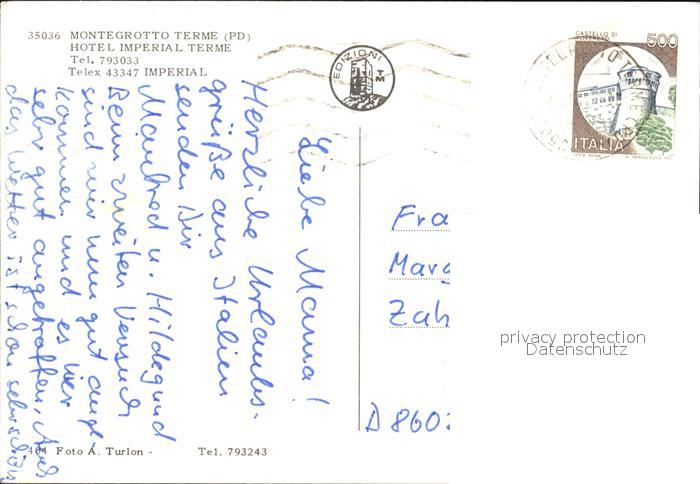 35036 MONTEGROTTO TERME (PD)
HOTEL IMPERIAL TERME
Tel. 793033
Telex 43347 IMPERIAL
EDIZIONI
TM
CASTELLO DI
ROVERETO
500
ITALIA
Liebe Mama!
Herzliche Urlaubs-
grüße aus Italien
senden Dir
Manfred u. Hildegund
Beim zweiten Versuch
sind wir nun gut ange-
kommen und es hier
sehr gut angetroffen. Auch
das Wetter ist schon sehr schön
Fra
Marg
Zah
D 860
privacy protection
Datenschutz
404 Foto A. Turlon - Tel. 793243